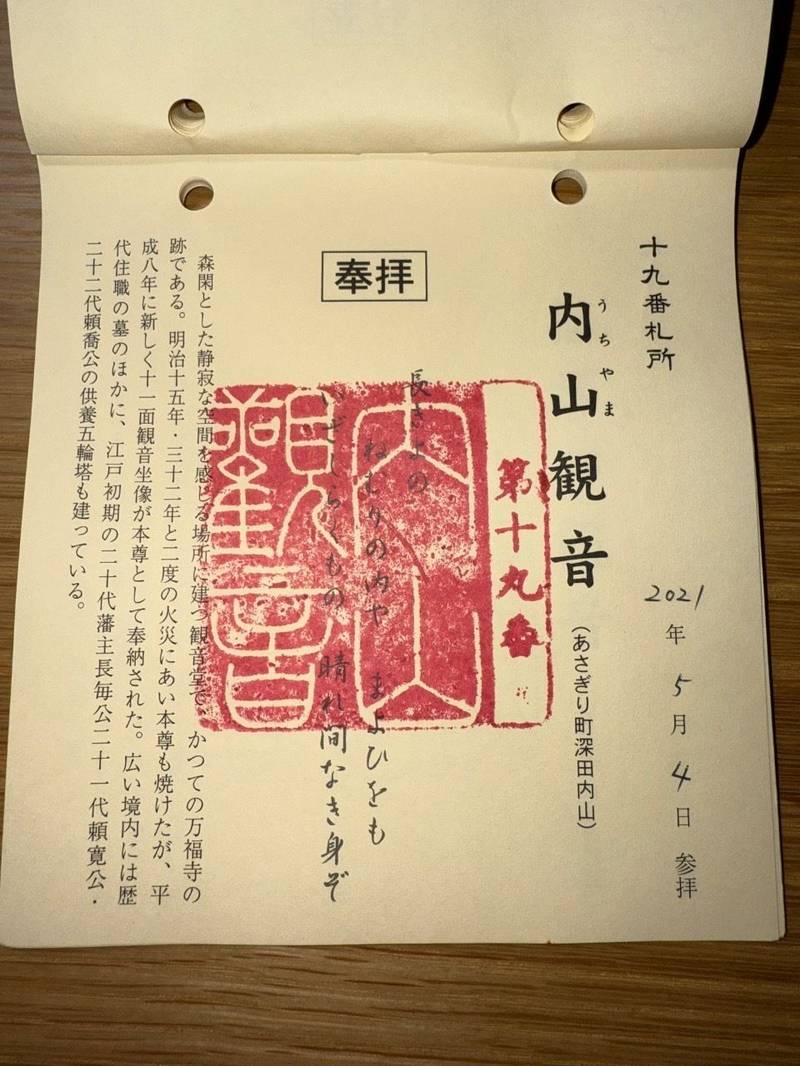 十九番札所
2021年5月4日 参拝
うちやま
内山観音
(あさぎり町深田内山)
第十九番
内山
観音
奉拝
長きよの
ねむりの内や まよひをも
いざしらくもの 晴れ間なき身ぞ
森閑とした静寂な空間を感じる場所に建つ観音堂で、かつての万福寺の
跡である。明治十五年・三十二年と二度の火災にあい本尊も焼けたが、平
成八年に新しく十一面観音坐像が本尊として奉納された。広い境内には歴
代住職の墓のほかに、江戸初期の二十代藩主長毎公二十一代頼寛公・
二十二代頼喬公の供養五輪塔も建っている。